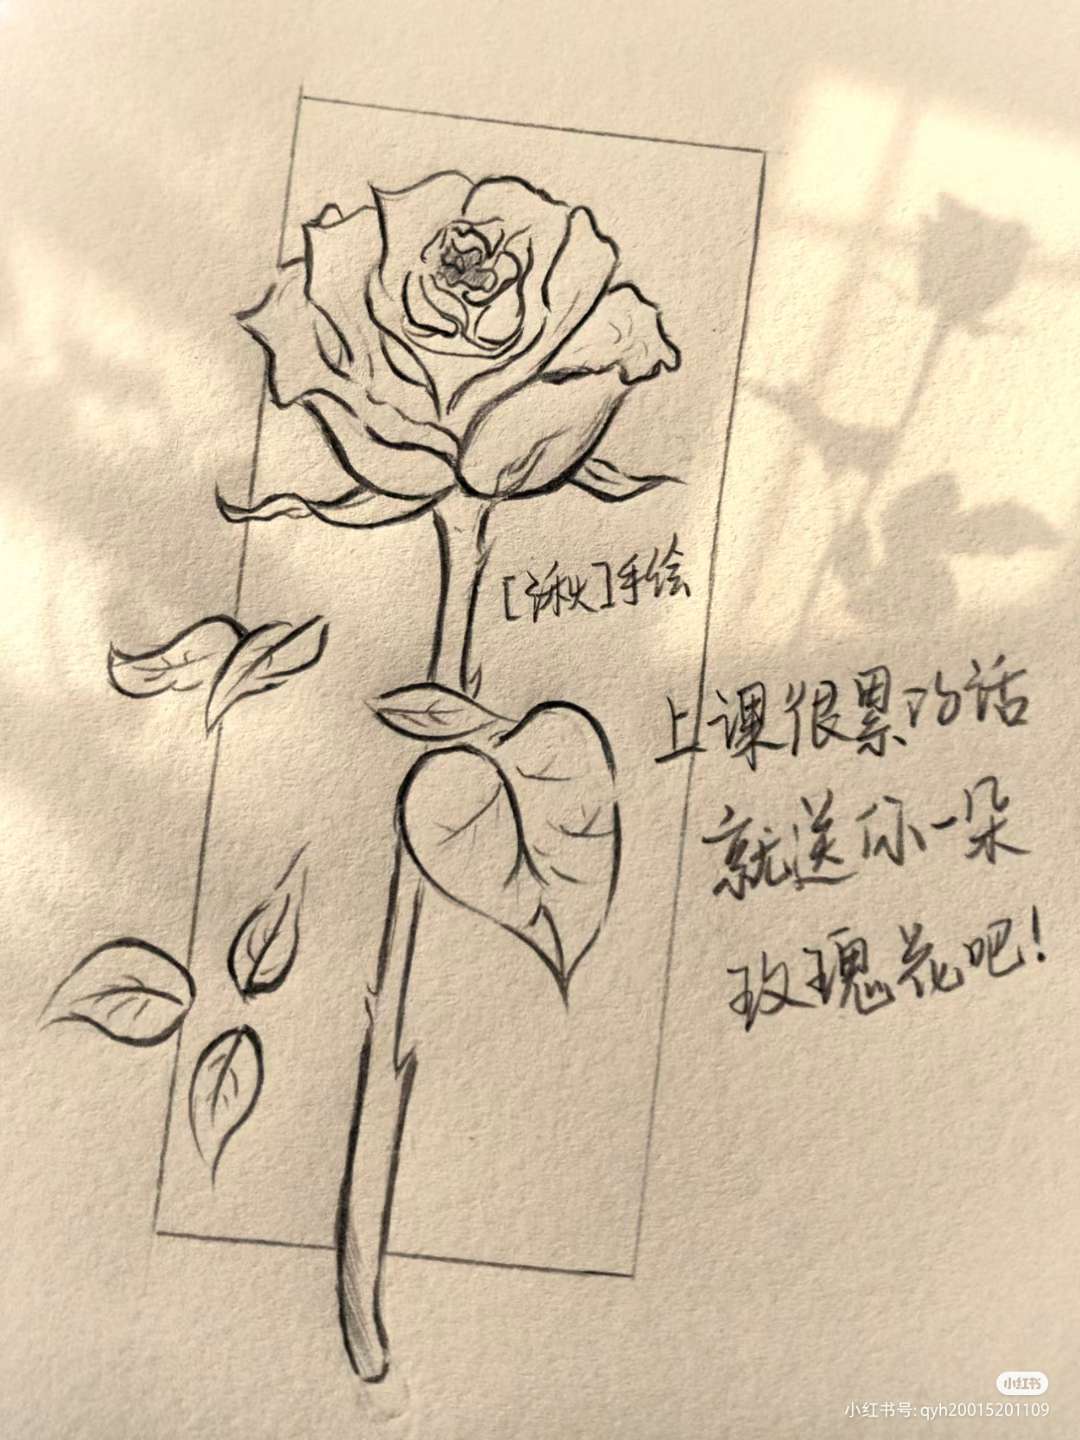 [湫]手绘
上课很累的话
就送你一朵
玫瑰花吧!
小红书
小红书号:qyh20015201109